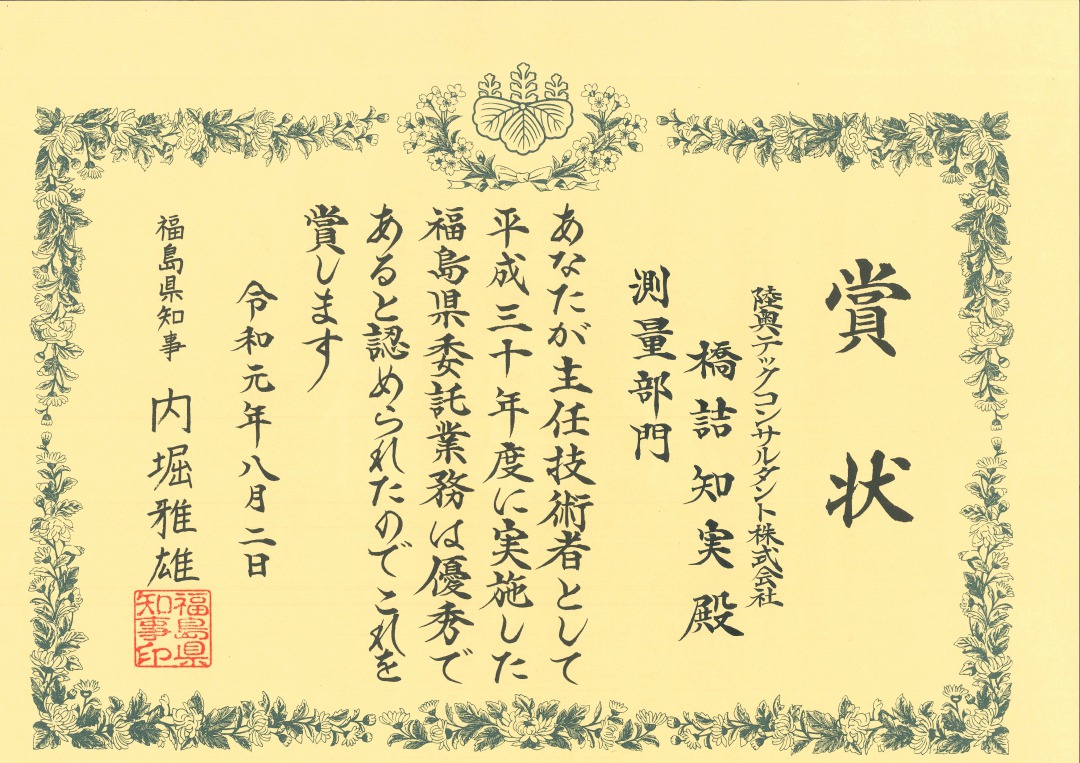 賞状
陸奥テックコンサルタント株式会社
橋詰知実殿
測量部門
あなたが主任技術者として
平成三十年度に実施した
福島県委託業務は優秀で
あると認められたのでこれを
賞します
令和元年八月二日
福島県知事 内堀雅雄
福島県
知事印